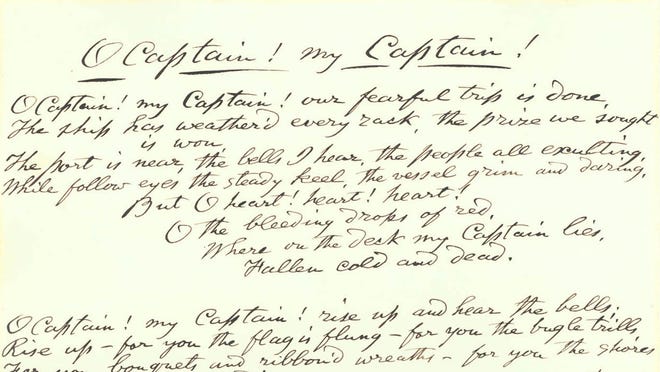 O Captain! my Captain!
O Captain! my Captain! our fearful trip is done,
The ship has weather'd every rack, the prize we sought
is won,
The port is near, the bells I hear, the people all exulting,
While follow eyes the steady keel, the vessel grim and daring,
But O heart! heart! heart!
O the bleeding drops of red,
Where on the deck my Captain lies,
Fallen cold and dead.
O Captain! my Captain! rise up and hear the bells;
Rise up—for you the flag is flung—for you the bugle trills
For you bouquets and ribbon'd wreaths—for you the shores